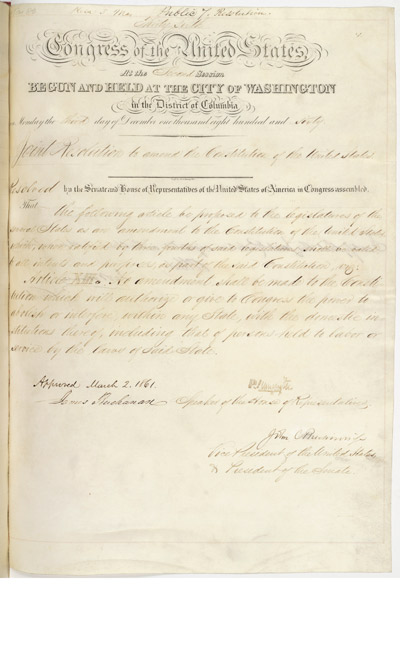 Public Resolution
Congress of the United States,
At the Second Session
BEGUN AND HELD AT THE CITY OF WASHINGTON
in the District of Columbia
on Monday the third day of December one thousand eight hundred and sixty.
Joint Resolution to amend the Constitution of the United States
Resolved by the Senate and House of Representatives of the United States of America in Congress assembled,
That the following article be proposed to the Legislatures of the
several States as an amendment to the Constitution of the United States
which, when ratified by three fourths of said Legislatures, shall be valid
to all intents and purposes, as part of the said Constitution, viz:
Article XIII. No amendment shall be made to the Consti-
tution which will authorize or give to Congress the power to
abolish or interfere, within any State, with the domestic in-
stitutions thereof, including that of persons held to labor or
service by the laws of said State.
Approved March 2. 1861.
James Buchanan
Speaker of the House of Representatives,
John C. Breckinridge
Vice President of the United States
& President of the Senate